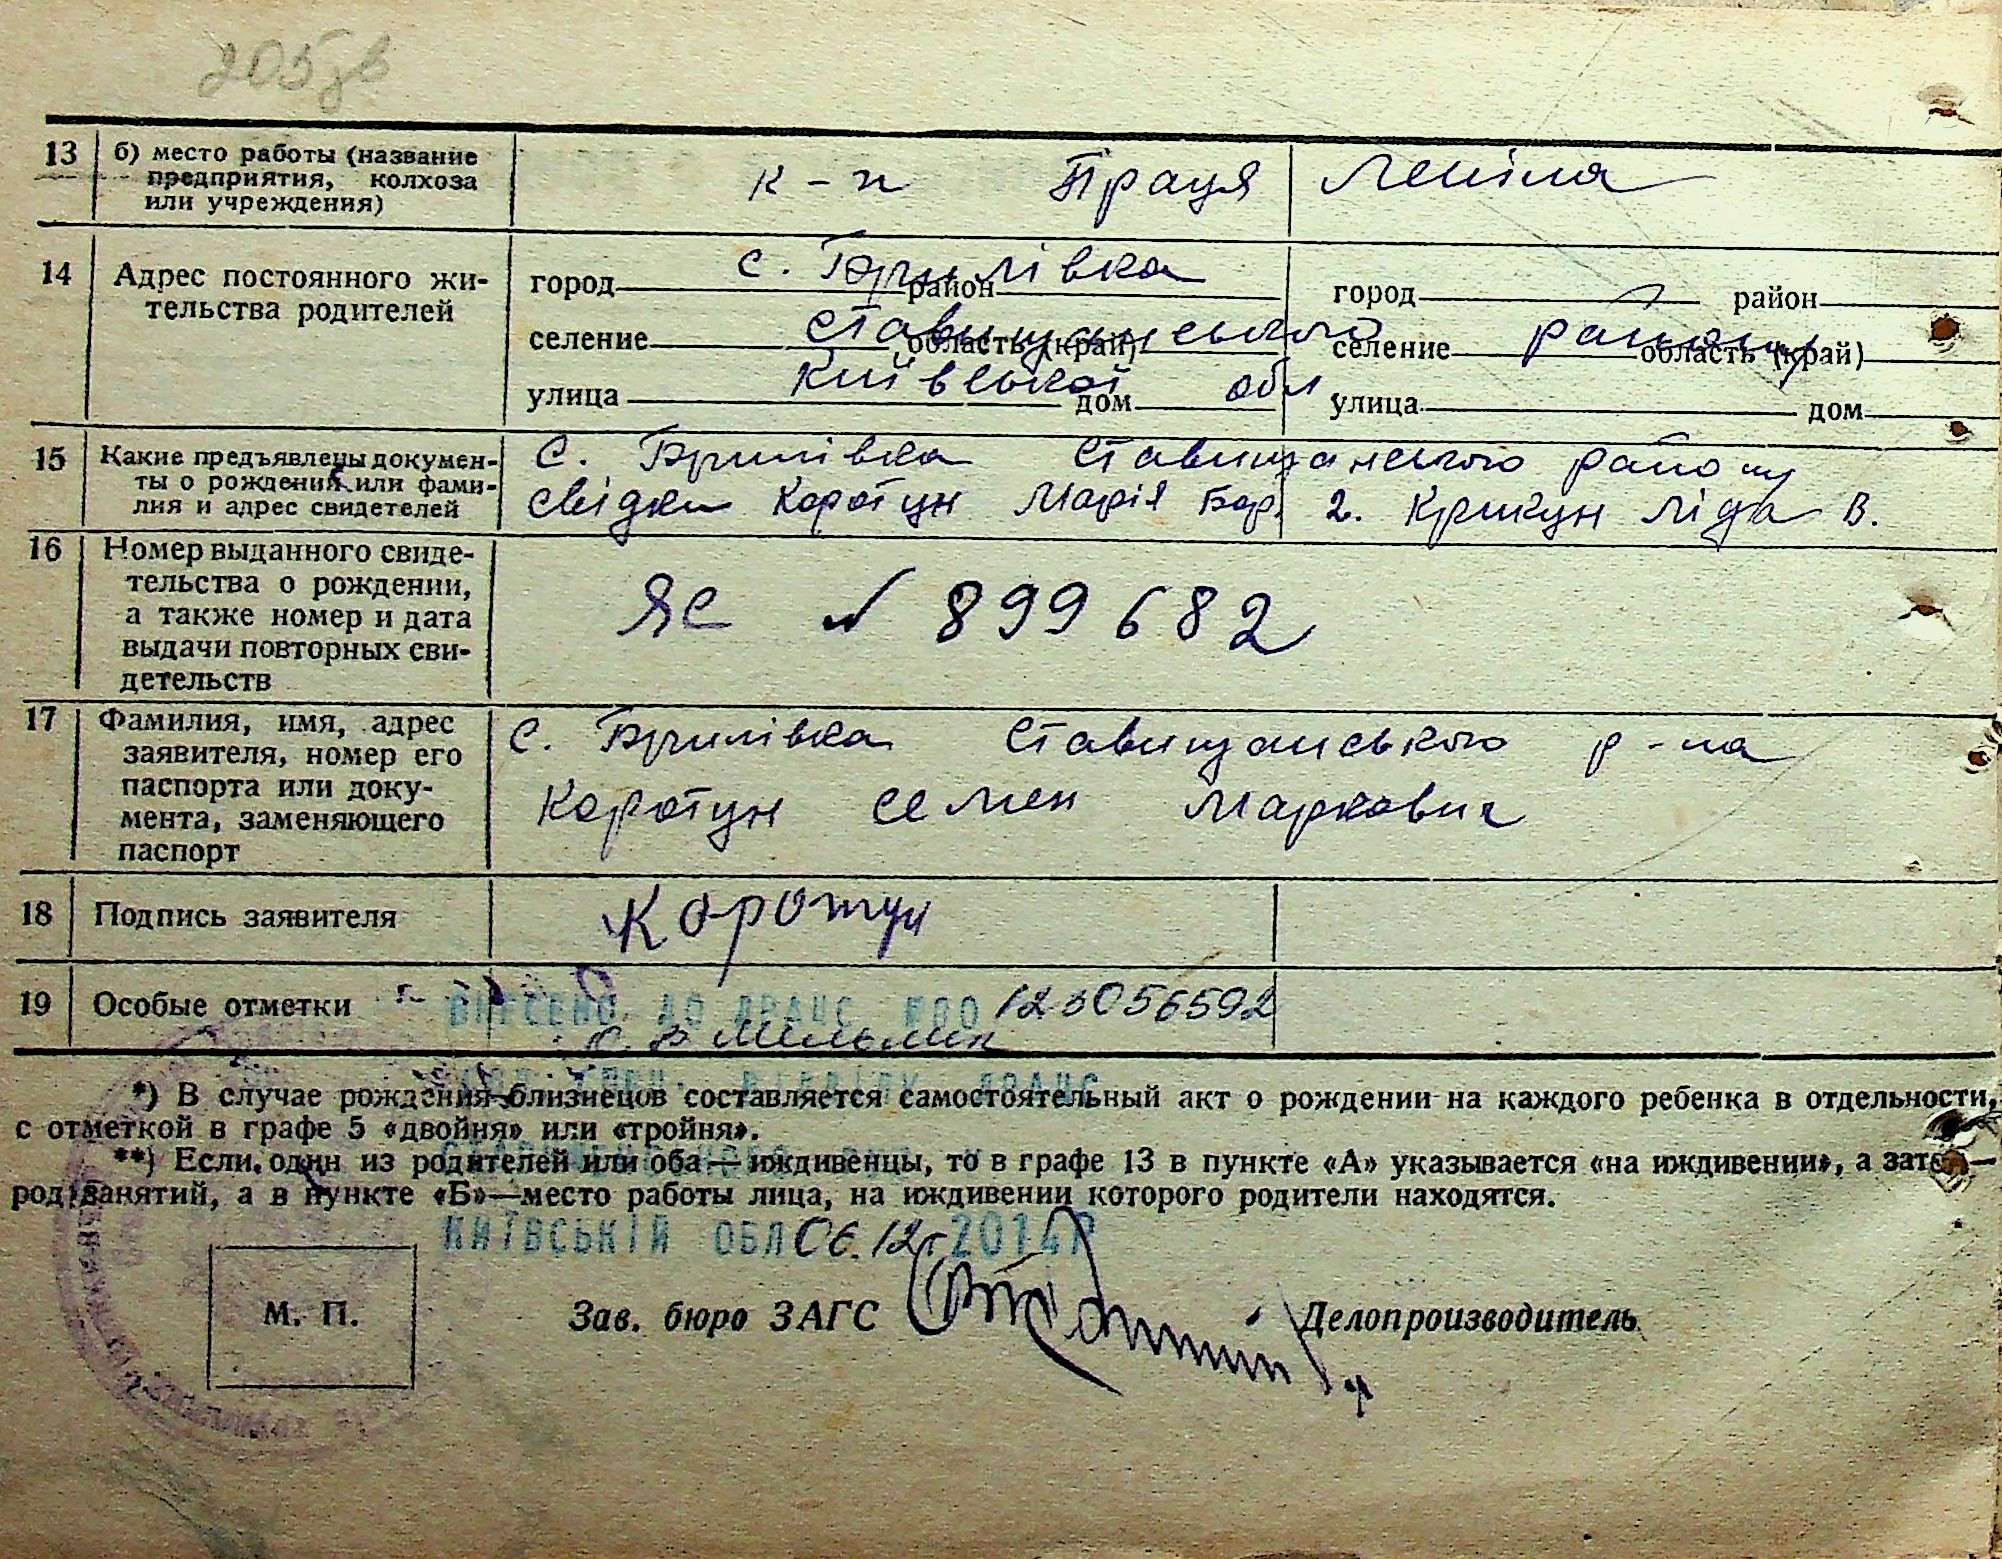 205зв
13 б) место работы (название
предприятия, колхоза
или учреждения)
к-п Праця Леніна
14 Адрес постоянного жи-
тельства родителей
город район город район
с. Брилівка
селение область (край) селение область (край)
Ставищанського району
улица дом улица дом
Київської обл
15 Какие предъявлены докумен-
ты о рождении или фами-
лия и адрес свидетелей
с. Брилівка Ставищанського району
свідки Коротун Марія Бор. 2. Крикун Ліда В.
16 Номер выданного свиде-
тельства о рождении,
а также номер и дата
выдачи повторных сви-
детельств
ЯС № 899682
17 Фамилия, имя, адрес
заявителя, номер его
паспорта или доку-
мента, заменяющего
паспорт
с. Брилівка Ставищанського р-на
Коротун Семен Маркович
18 Подпись заявителя
Коротун
19 Особые отметки
ВНЕСЕНО ДО ДРАЦС 123056592
*) В случае рождения близнецов составляется самостоятельный акт о рождении на каждого ребенка в отдельности,
с отметкой в графе 5 «двойня» или «тройня».
ВІДДІЛУ ДРАЦС
**) Если один из родителей или оба — иждивенцы, то в графе 13 в пункте «А» указывается «на иждивении», а затем —
род занятий, а в пункте «Б»—место работы лица, на иждивении которого родители находятся.
КИЇВСЬКІЙ ОБЛ 06.12. 2014Р
М. П. Зав. бюро ЗАГС Делопроизводитель